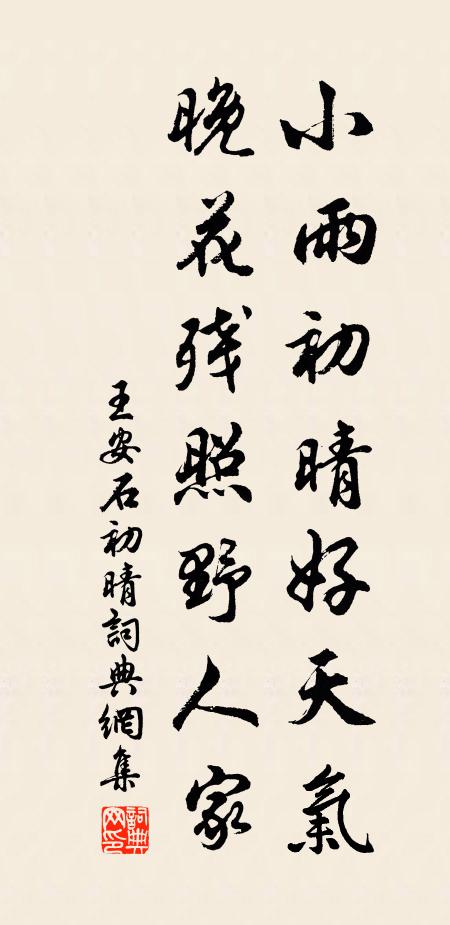 小雨初晴好天氣
晚花残照野人家
王安石初晴詞典網集
詞典網印